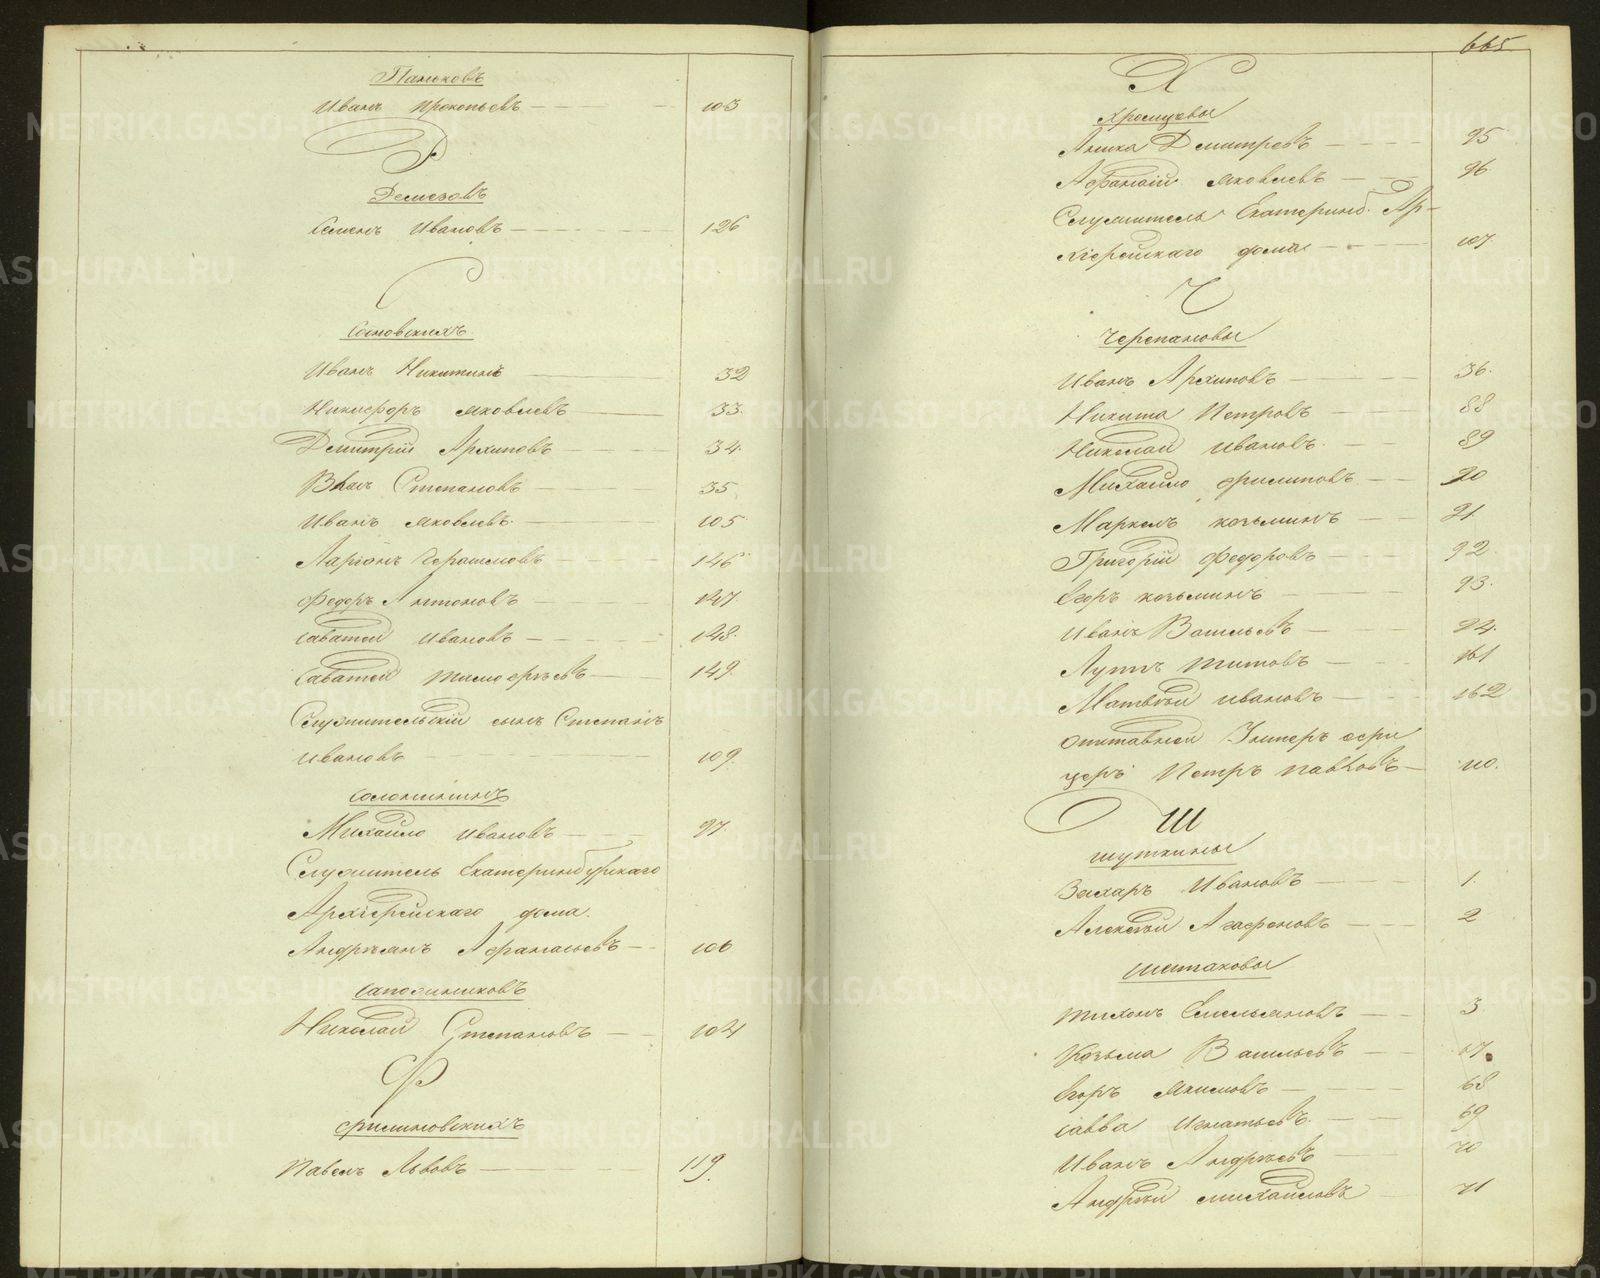 Паньковъ
Иванъ Прокопьевъ 103
Р
Ремезовъ
Семенъ Ивановъ 126
С
Сосновскихъ
Иванъ Никитинъ 32
Никифоръ Яковлевъ 33.
Дмитрій Архиповъ 34.
Степановъ 35
Иванъ Яковлевъ 105
Ларіонъ Герасимовъ 146
Федоръ Антоновъ 147.
Саватей Ивановъ 148.
Саватей Тимофѣевъ 149.
Служительскій сынъ Степанъ
Ивановъ 109.
Солонининъ
Михайло Ивановъ 97.
Служитель Екатеринбургскаго
Архіерейскаго дома.
Андрѣянъ Афанасьевъ 106
Сапожниковъ
Николай Степановъ 104
Ф
Филиновскихъ
Павелъ Львовъ 119.
665
Х
Хромцовы
Аника Дмитревъ 95
Афанасій Яковлевъ 96
Служитель Екатеринб. Ар-
хіерейскаго дома 107.
Ч
Черепановы
Иванъ Архиповъ 36.
Никита Петровъ 88
Николай Ивановъ 89
Михайло Филиповъ 90
Маркелъ Козьминъ 91
Григорій Федоровъ 92
Егоръ Козьминъ 93.
Иванъ Васильевъ 94.
Лупъ Титовъ 161
Матвѣй Ивановъ 162
Отставной Унтеръ офи
церъ Петръ Павловъ 110.
Ш
Шуткины
Захаръ Ивановъ 1.
Алексѣй Агафоновъ 2
Шатаковы
Тихонъ Емельяновъ 3
Козьма Васильевъ 67.
Егоръ Якимовъ 68
Савва Игнатьевъ 69
Иванъ Андрѣевъ 70
Андрѣй Михайловъ 71
METRIKI.GASO-URAL.RU